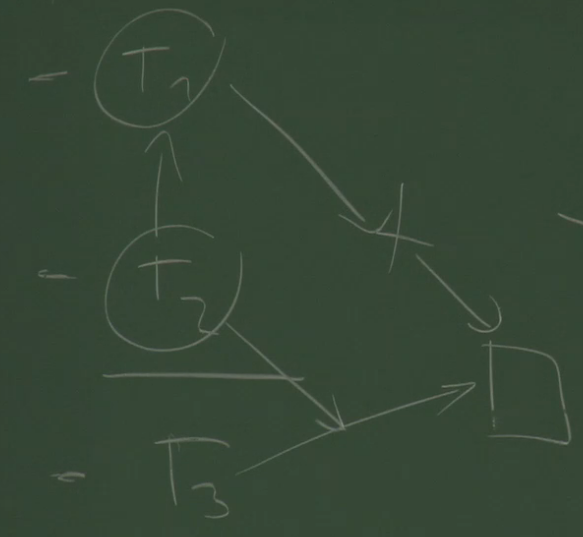 - T1
- T2
- T3